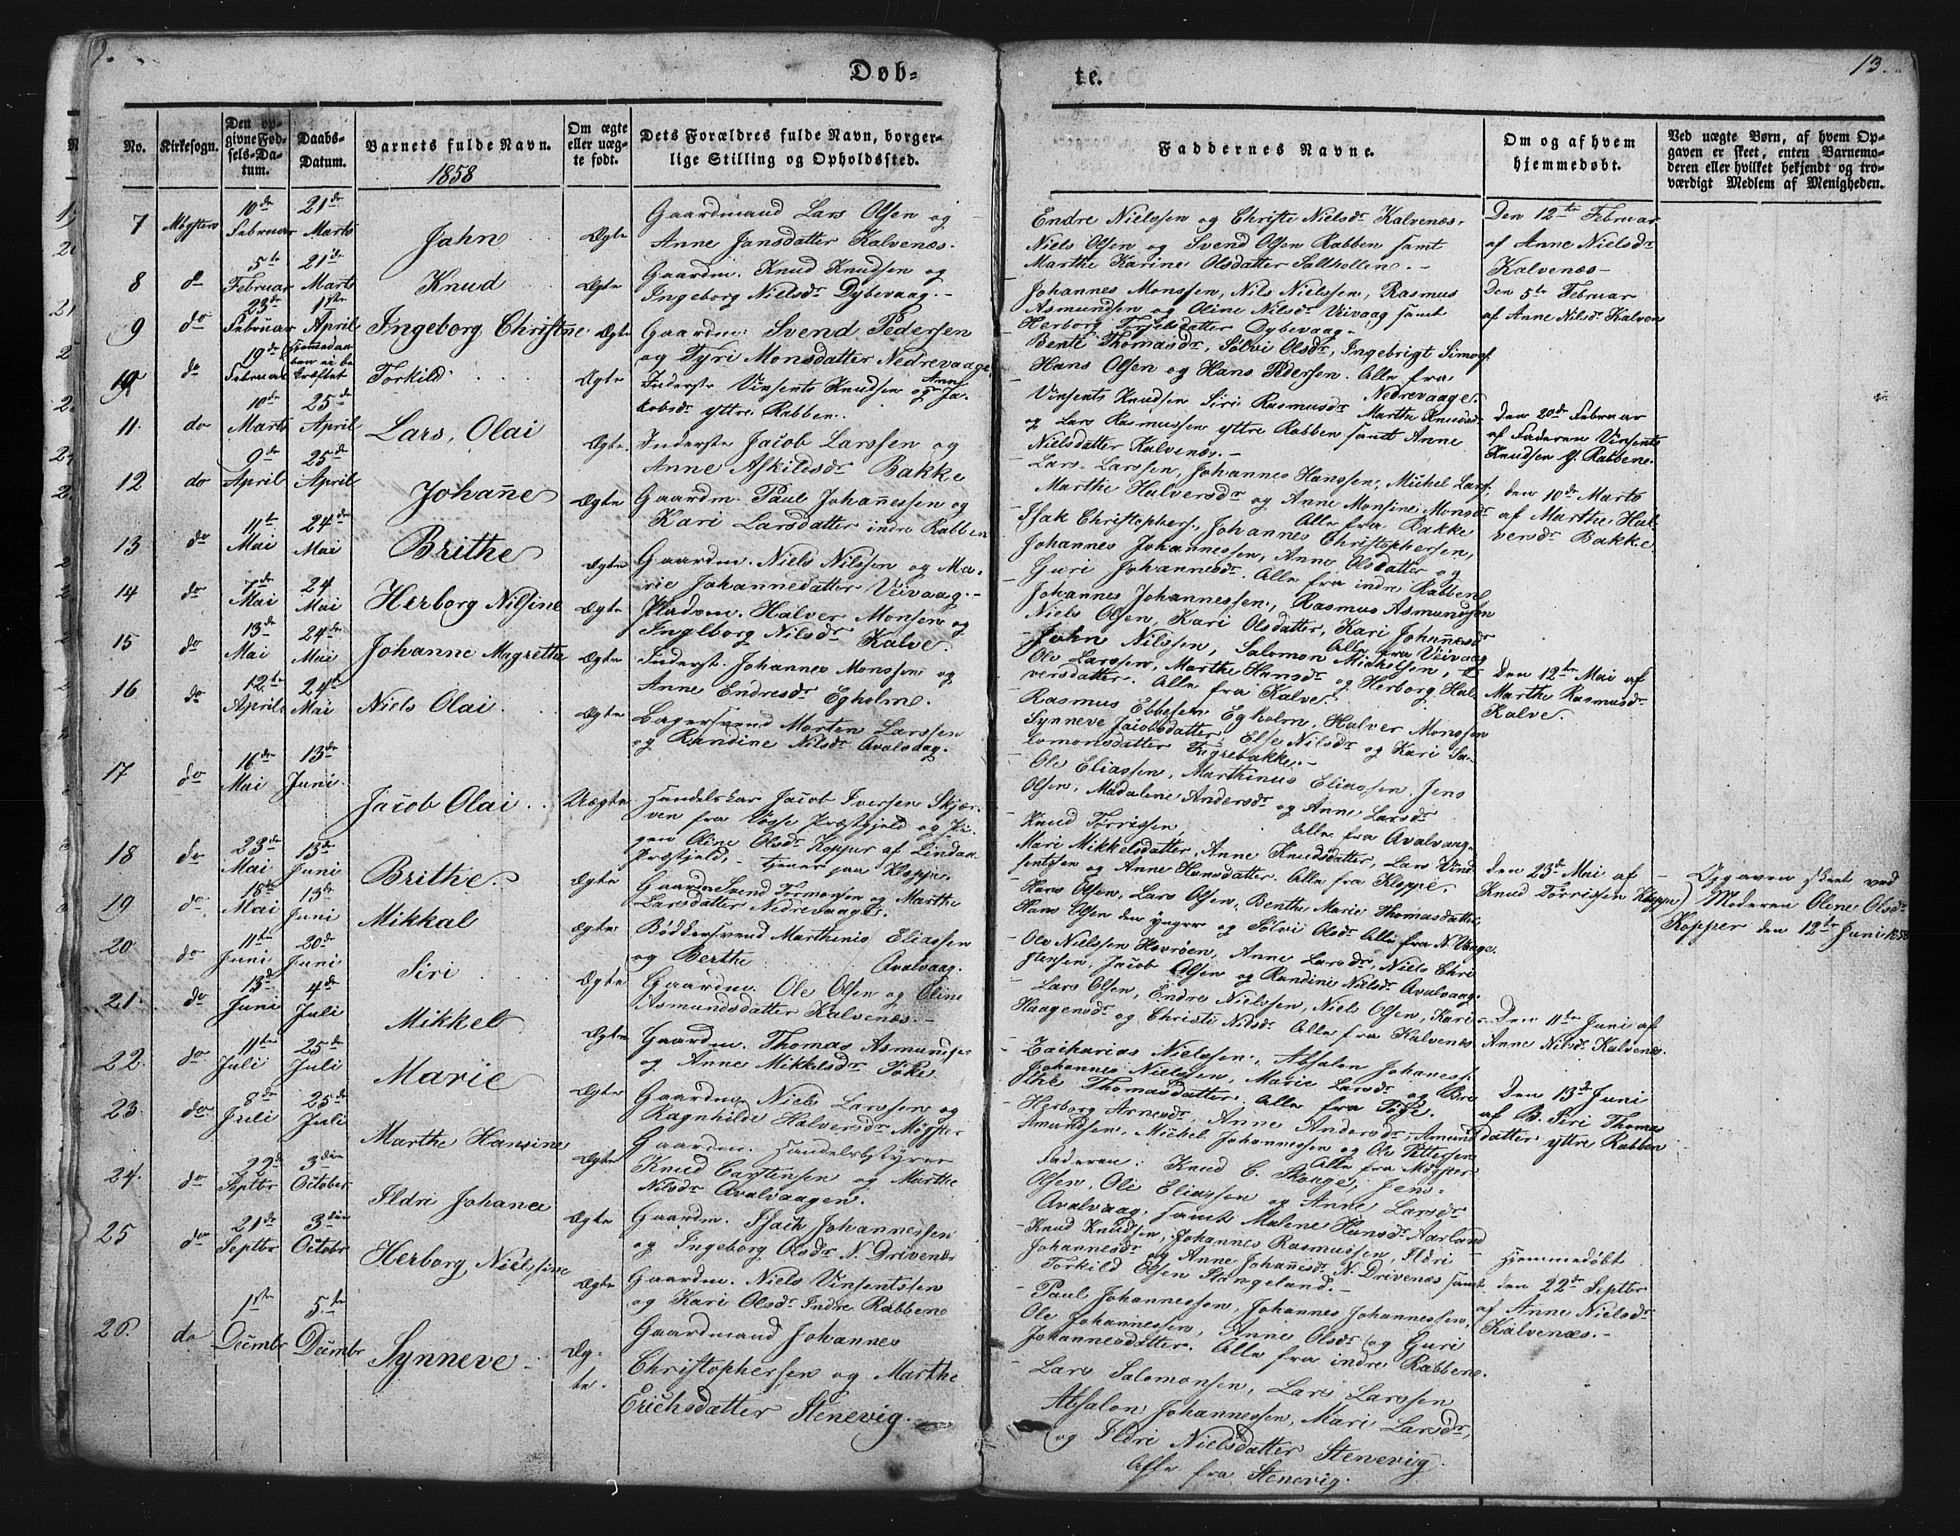 Døb-
te.
13.
No.
Kirkesogn.
Den op-
givne Fød-
sels-Da-
tum.
Daabs-
Datum.
Barnets fulde Navn.
1858
Om ægte
eller uæg-
te født.
Dets Forældres fulde Navn, borger-
lige Stilling og Opholdssted.
Faddernes Navne.
Om og af hvem
hjemmedøbt.
Ved uægte Børn, af hvem Op-
gaven er skeet, enten Barnemo-
deren eller hvilket bekjendt og tro-
værdigt Medlem af Menigheden.
7
10de Februar
21de Marts
Jahn
Ægte
Gaardmand Lars Olsen og
Anne Jansdatter Kalvenæs.
Endre Nielssen og Christi Nielsdr Kalvenæs.
Niels Olsen og Svend Olsen Rabben samt
Marthe Karine Olsdatter Salthellen.
Den 12te Februar
af Anne Nielsdr
Kalvenæs
8
do
5te Februar
21de Marts
Knud
Ægte
Gaardm. Knud Knudsen og
Ingeborg Nielsdr Dybevaag.
Johannes Monssen, Nils Nielssen, Rasmus
Asmundsen og Oline Nilsdr Veivaag samt
Herborg Dybevaag
Den 5te Februar
af Anne Nilsdr Kalven
9
do
23de Februar
1ste April
Ingeborg Christine
Ægte
Gaardm. Svend Pedersen
og Tyri Monsdatter Nedrevaage
Bente Thomasdr, Sølvi Olsdr, Ingebrigt
Hans Olsen og Hans Pedersen. Alle fra
Nedrevaage.
10
do
19de Februar
Torkild
Ægte
Inderste Vinsents Knudsen og Anne Ja-
kobsdr yttre Rabben.
Vinsents Knudsen Siri Rasmusdr Marthe Knudsdr
og Lars Rasmussen yttre Rabben samt Anne
Nielsdatter Kalvenæs.
Den 20de Februar
af Faderen Vinsents
Knudsen Y. Rabbene.
11.
do
10de Marts
25de April
Lars, Olai
Ægte.
Inderste Jacob Larssen og
Anne Askildsdr Bakke
Lars Larssen, Johannes Hanssen, Michel Lars.
Marthe Halversdr og Anne Monsine Monsdr
Alle fra Bakke
den 10de Marts
af Marthe Hal-
versdr Bakke.
12
do
9de April
25de April
Johanne
Ægte
Gaardm. Paul Johannessen og
Kari Larsdatter indre Rabben
Isak Christophers. Johannes Christophersen,
Johannes Johannessen, Anne Olsdatter og
Guri Johannesdr. Alle fra indre Rabbene
13
do
11te Mai
24de Mai
Brithe
Ægte
Gaardm. Niels Nilssen og Ma-
rie Johannedatter Veivaag.
Johannes Johannessen, Rasmus Asmundsen
Niels Olsen, Kari Olsdatter, Kari Johannesdr
Alle fra Veivaag
14
do
7de Mai
24 Mai
Herborg Nilsine
Ægte
Pladsm. Halver Monsen og
Ingeborg Nilsdr Kalve.
Jahn Nilssen, Salomon
Ole Larssen, Marthe Hansdr og Herborg Hal-
versdatter. Alle fra Kalve.
15
do
13de Mai
24de Mai
Johanne Magretha
Ægte
Inderst. Johannes Monssen og
Anne Endresdr Egholm.
Rasmus Ebbesen Egholm, Halver Monssen
Synneve Jacobsdatter, Else Nilsdr og Kari Sa-
lomonsdatter
Den 12te Mai af
Marthe Rasmusdr
Kalve.
16
do
12te April
24de Mai
Niels Olai
Ægte
Bagersvend Morten Larssen
og Randine Nilsdr Avalsvag.
Ole Eliassen, Marthinus Eliassen, Jens
Olsen, Madalene Andersdr og Anne Larsdr
Alle fra Avalvaag
17
do
16de Mai
13de Juni.
Jacob Olai
Uægte
Handelskar Jacob Iversen Skjer-
ven fra Vosse Præstgjeld og Pi-
gen Oline Olsdr Kopper af Lindaas
Præstgjeld, tjener paa Kleppe.
Knud Tørrissen
Mari Mikkelsdatter, Anne Knudsdatter, Lars Vind-
sentssen og Anne Hansdatter. Alle fra Kleppe.
den 23de Mai af
Knud Tørrissen Kleppe
Opgaven skeet ved
Moderen Olene Olsdr
Kopper den 12te Juni 1858
18
do
23de Mai
13de Juni
Brithe.
Ægte
Gaardm Svend Tormonsen og Marthe
Larsdatter Nedrevaage.
Hans Olsen, Lars Olsen, Benthe Marie Thomasdatter
Hans Olsen den yngre og Sølvi Olsdr Alle fra N. Vaage.
19
do
18de Mai
13de Juni
Mikkal
Ægte
Bødkersvend Marthinus Eliassen
og Berthe Avalvaag.
Ole Nielssen Hovrøen, Anne Larsdr, Niels Chri-
stensen, Jacob Olsen og Randine Nielsdr Avalvaag.
20
do
11te Juni
20de Juni
Siri
Ægte
Gaardm. Ole Olsen og Oline
Asmundsdatter Kalvenæs.
Lars Olsen, Endre Nielssen, Niels Olsen, Kari
Haagensdr og Christi Nilsdr Alle fra Kalvenæs
Den 11te Juni af
Anne Nilsdr Kalvenæs.
21.
do
13de Juni
4de Juli
Mikkel
Ægte
Gaardm. Thomas Asmundsen
og Anne Mikkelsdr Føke
Zacharias Nielssen, Absalon Johanes.
Johannes Nielssen, Marie Larsdr og Bri-
the Thomasdatter. Alle fra Føke.
Den 13de Juni
af B. Siri Thomas
datter yttre Rabben
22.
do
11te Juli
25de Juli
Marie
Ægte
Gaardm. Niels Larssen og
Ragnhilde Halversdr
Herborg Arnesdr, Anne Andersdr, Amund
Amundsen, Michel Johannessen og Ole Pettersen
Alle fra
23.
do
8de Juli
25de Juli
Marthe Hansine
Ægte
Gaardm. Handelsbstyrer
Knud Carstensen og Marthe
Nilsdr Avalvaagen.
Faderen: Knud C. Skauge, Jens
Olsen, Ole Eliassen og Anne Larsdr
Avalvaag, samt Malene Hansdr Aarland
24.
do
22de Septbr
3die October
Ildri Johanne
Ægte
Gaardm. Isach Johannessen
og Ingeborg Olsdr N. Drivenæs
Knud Knudsen, Johannes Rasmussen, Ildri
Johannesdr og Anne Johannesdr N. Drivenæs samt
Torkild Olsen Stangeland.
Hjemmedøbt
den 22de Septbr
af Anne Nielsdr
Kalvenæs.
25
do
21de Septbr
3die Octobr
Herborg Nielsine
Ægte
Gaardm. Niels Vinsentssen
og Kari Olsdr Indre Rabbene
Paul Johannessen, Johannes Johannessen,
Ole Johannessen, Anne Olsdr og Guri
Johannesdatter. Alle fra indre Rabbene.
26.
do
1ste Decembr
5te Decembr
Synneve
Æg-
te.
Gaardmand Johannes
Christophersen og Marthe
Erichsdatter Stenevig.
Lars Salomonsen, Lars Larssen
Absalon Johannessen, Mari Larsdr,
og Ildri Nielsdatter Stenevig.
Alle fra Stenevig.